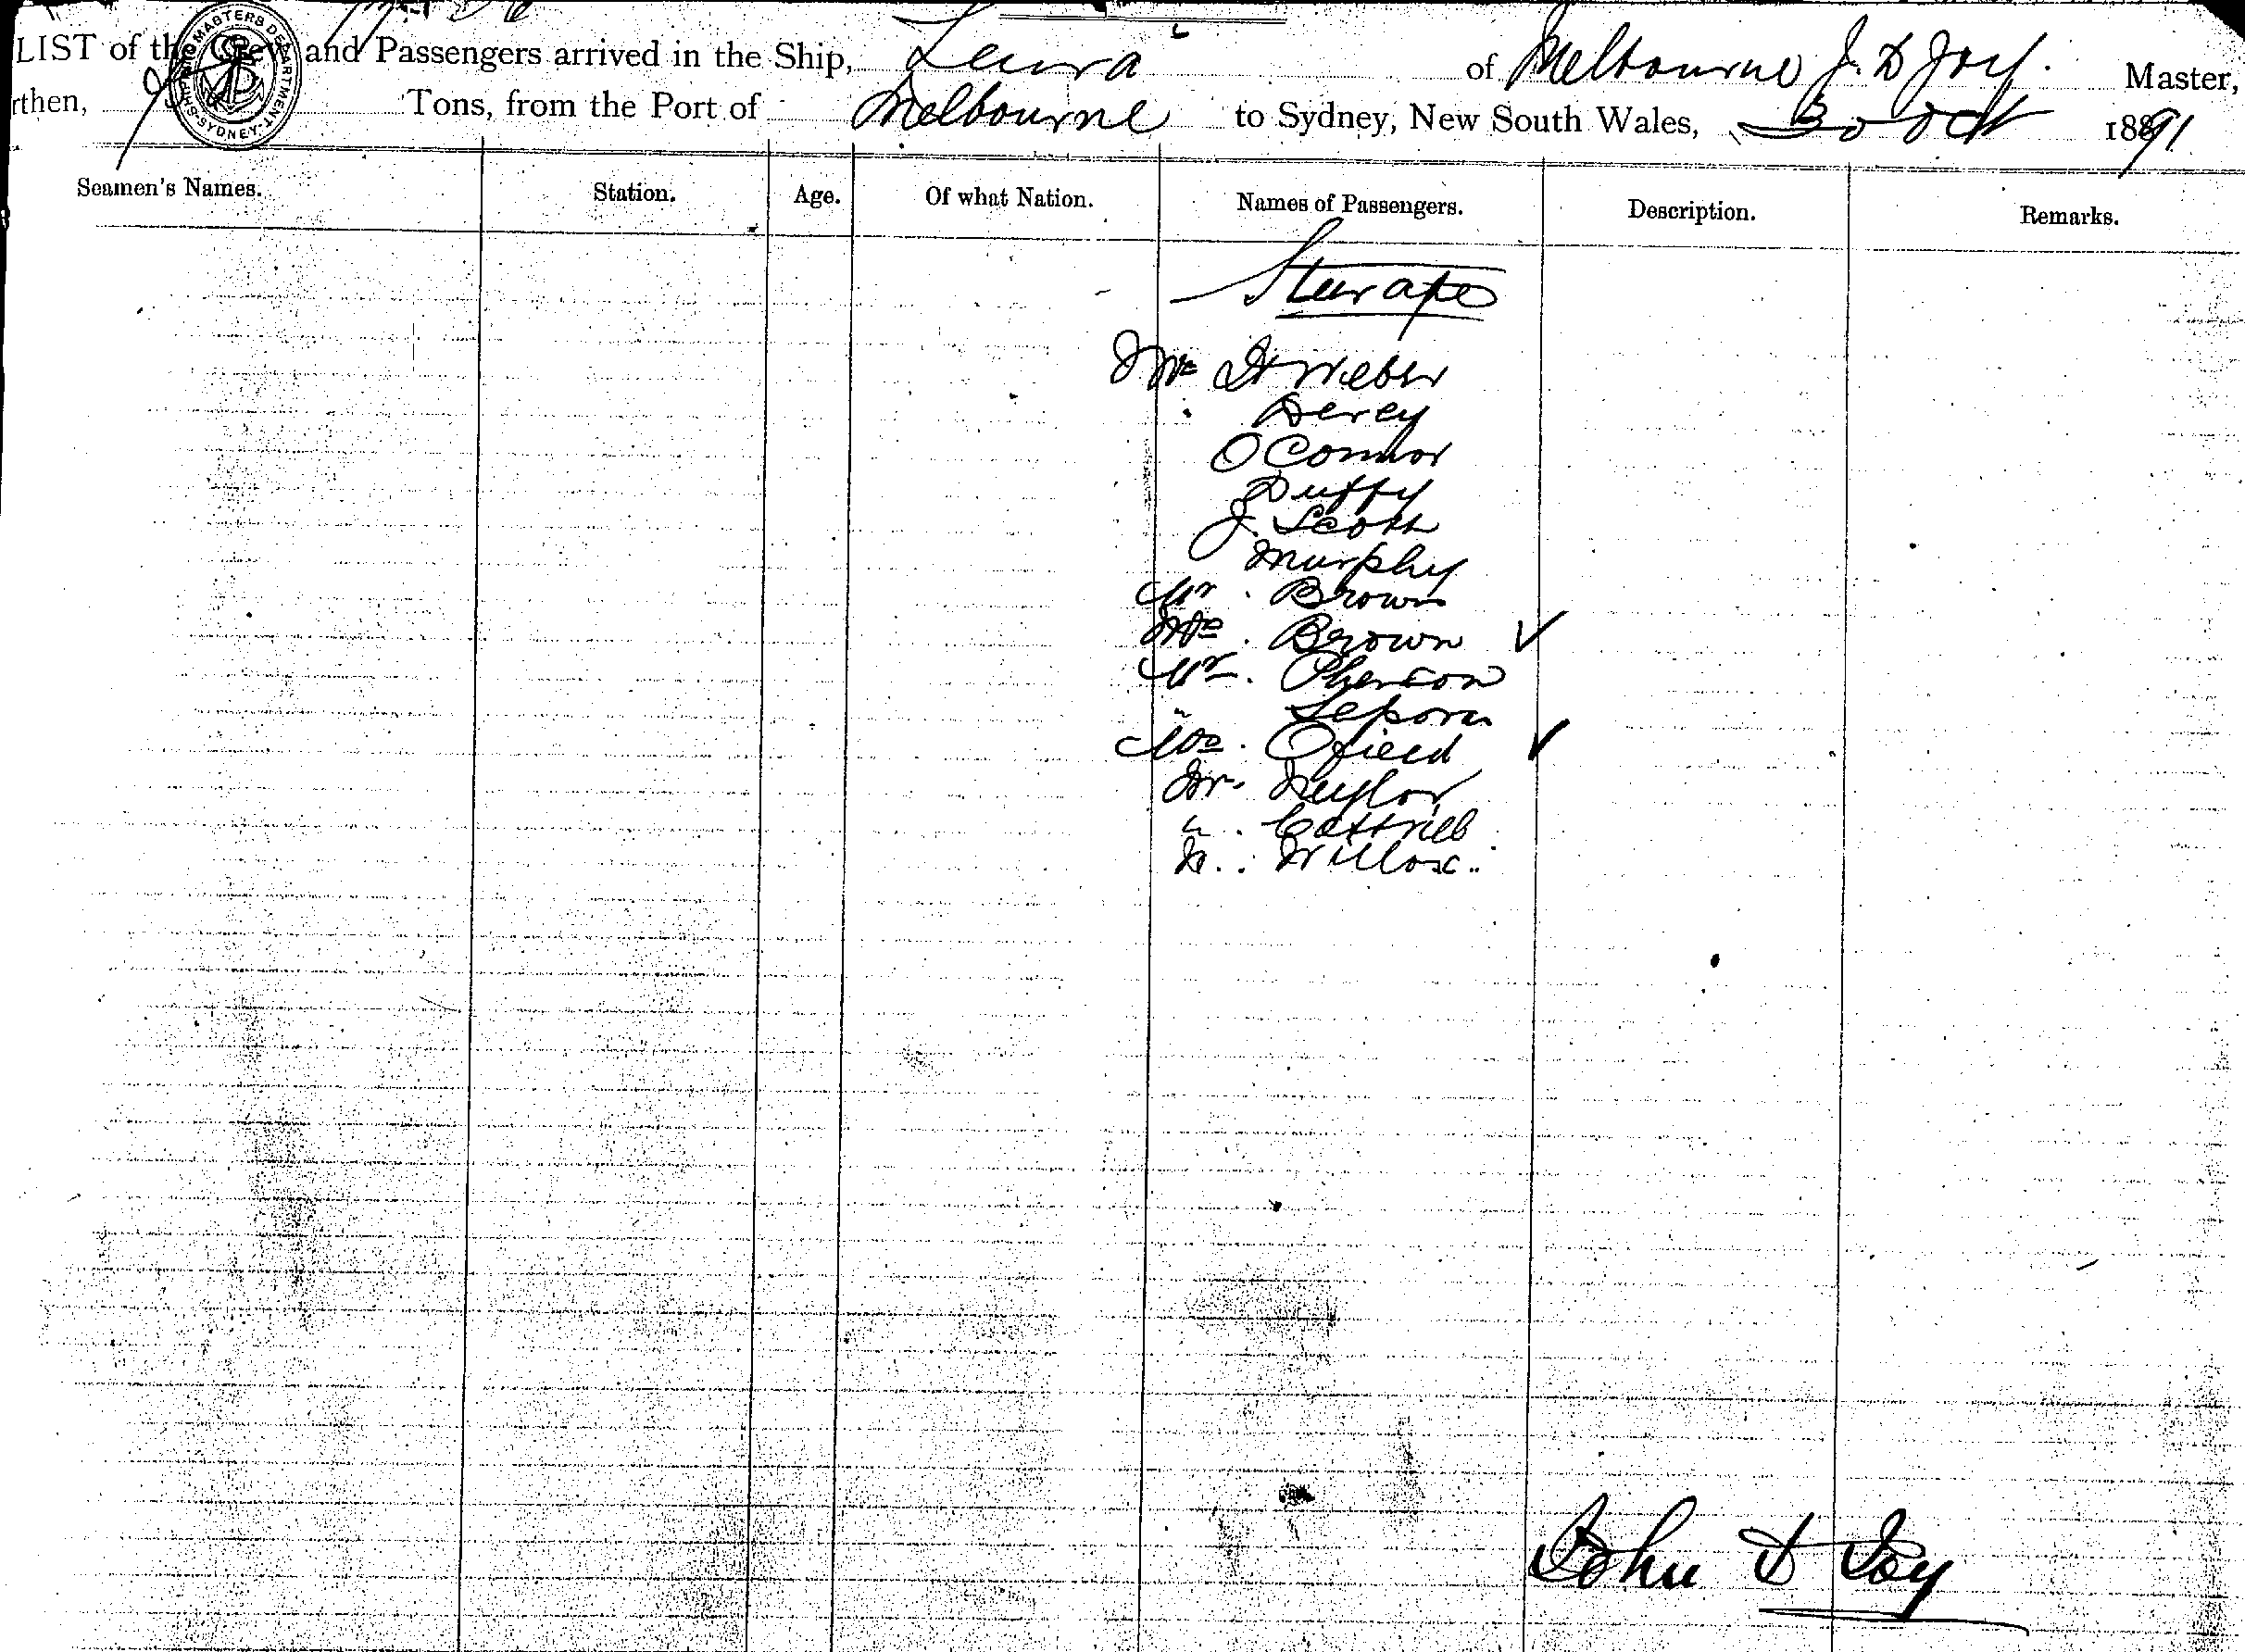 LIST of the Crew and Passengers arrived in the Ship, Leura of Melbourne J. D Joy. Master,
rthen, Tons, from the Port of Melbourne to Sydney, New South Wales, 30 Oct 1891
SHIPPING MASTERS DEPARTMENT SYDNEY
Seamen's Names. Station. Age. Of what Nation. Names of Passengers. Description. Remarks.
Steerage
Mr H Weber
Derey
O'Connor
Duffy
J. Scott
Murphy
Mr. Brown
Mrs. Brown
Mr. Pherson
"
Mrs. Ofield
Mr. Taylor
". Gottrieb
". Willox.
John D Joy